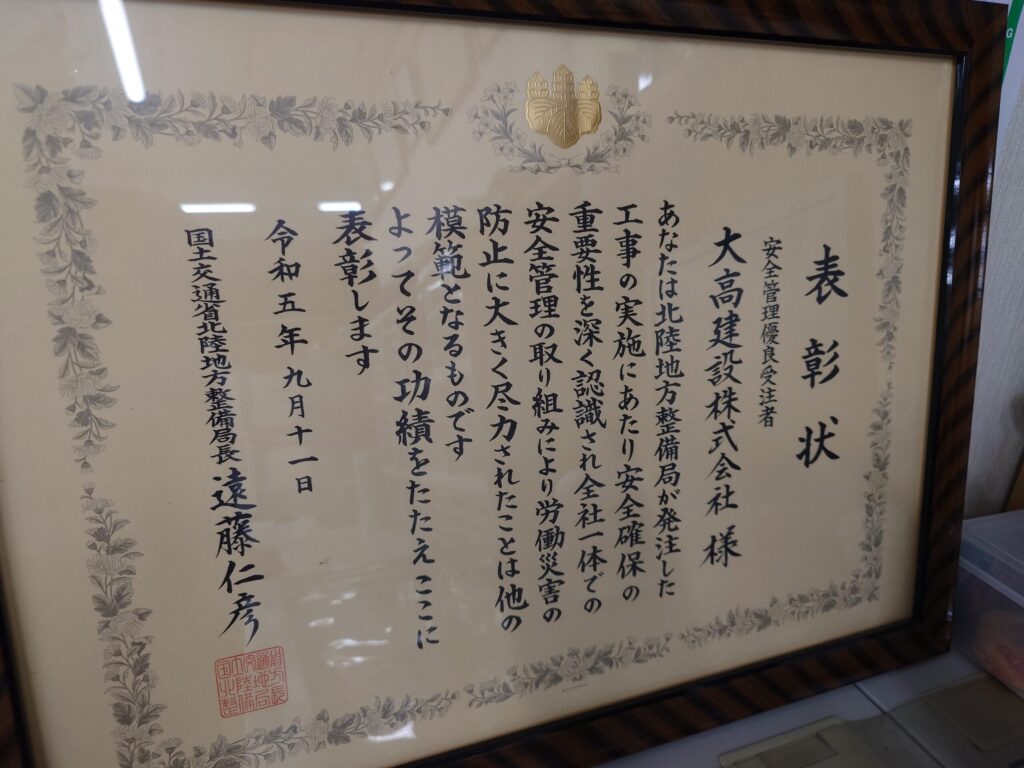 表彰状
安全管理優良受注者
大高建設株式会社 様
あなたは北陸地方整備局が発注した
工事の実施にあたり安全確保の
重要性を深く認識され全社一体での
安全管理の取り組みにより労働災害の
防止に大きく尽力されたことは他の
模範となるものです
よってその功績をたたえここに
表彰します
令和五年九月十一日
国土交通省北陸地方整備局長 遠藤仁彦
G